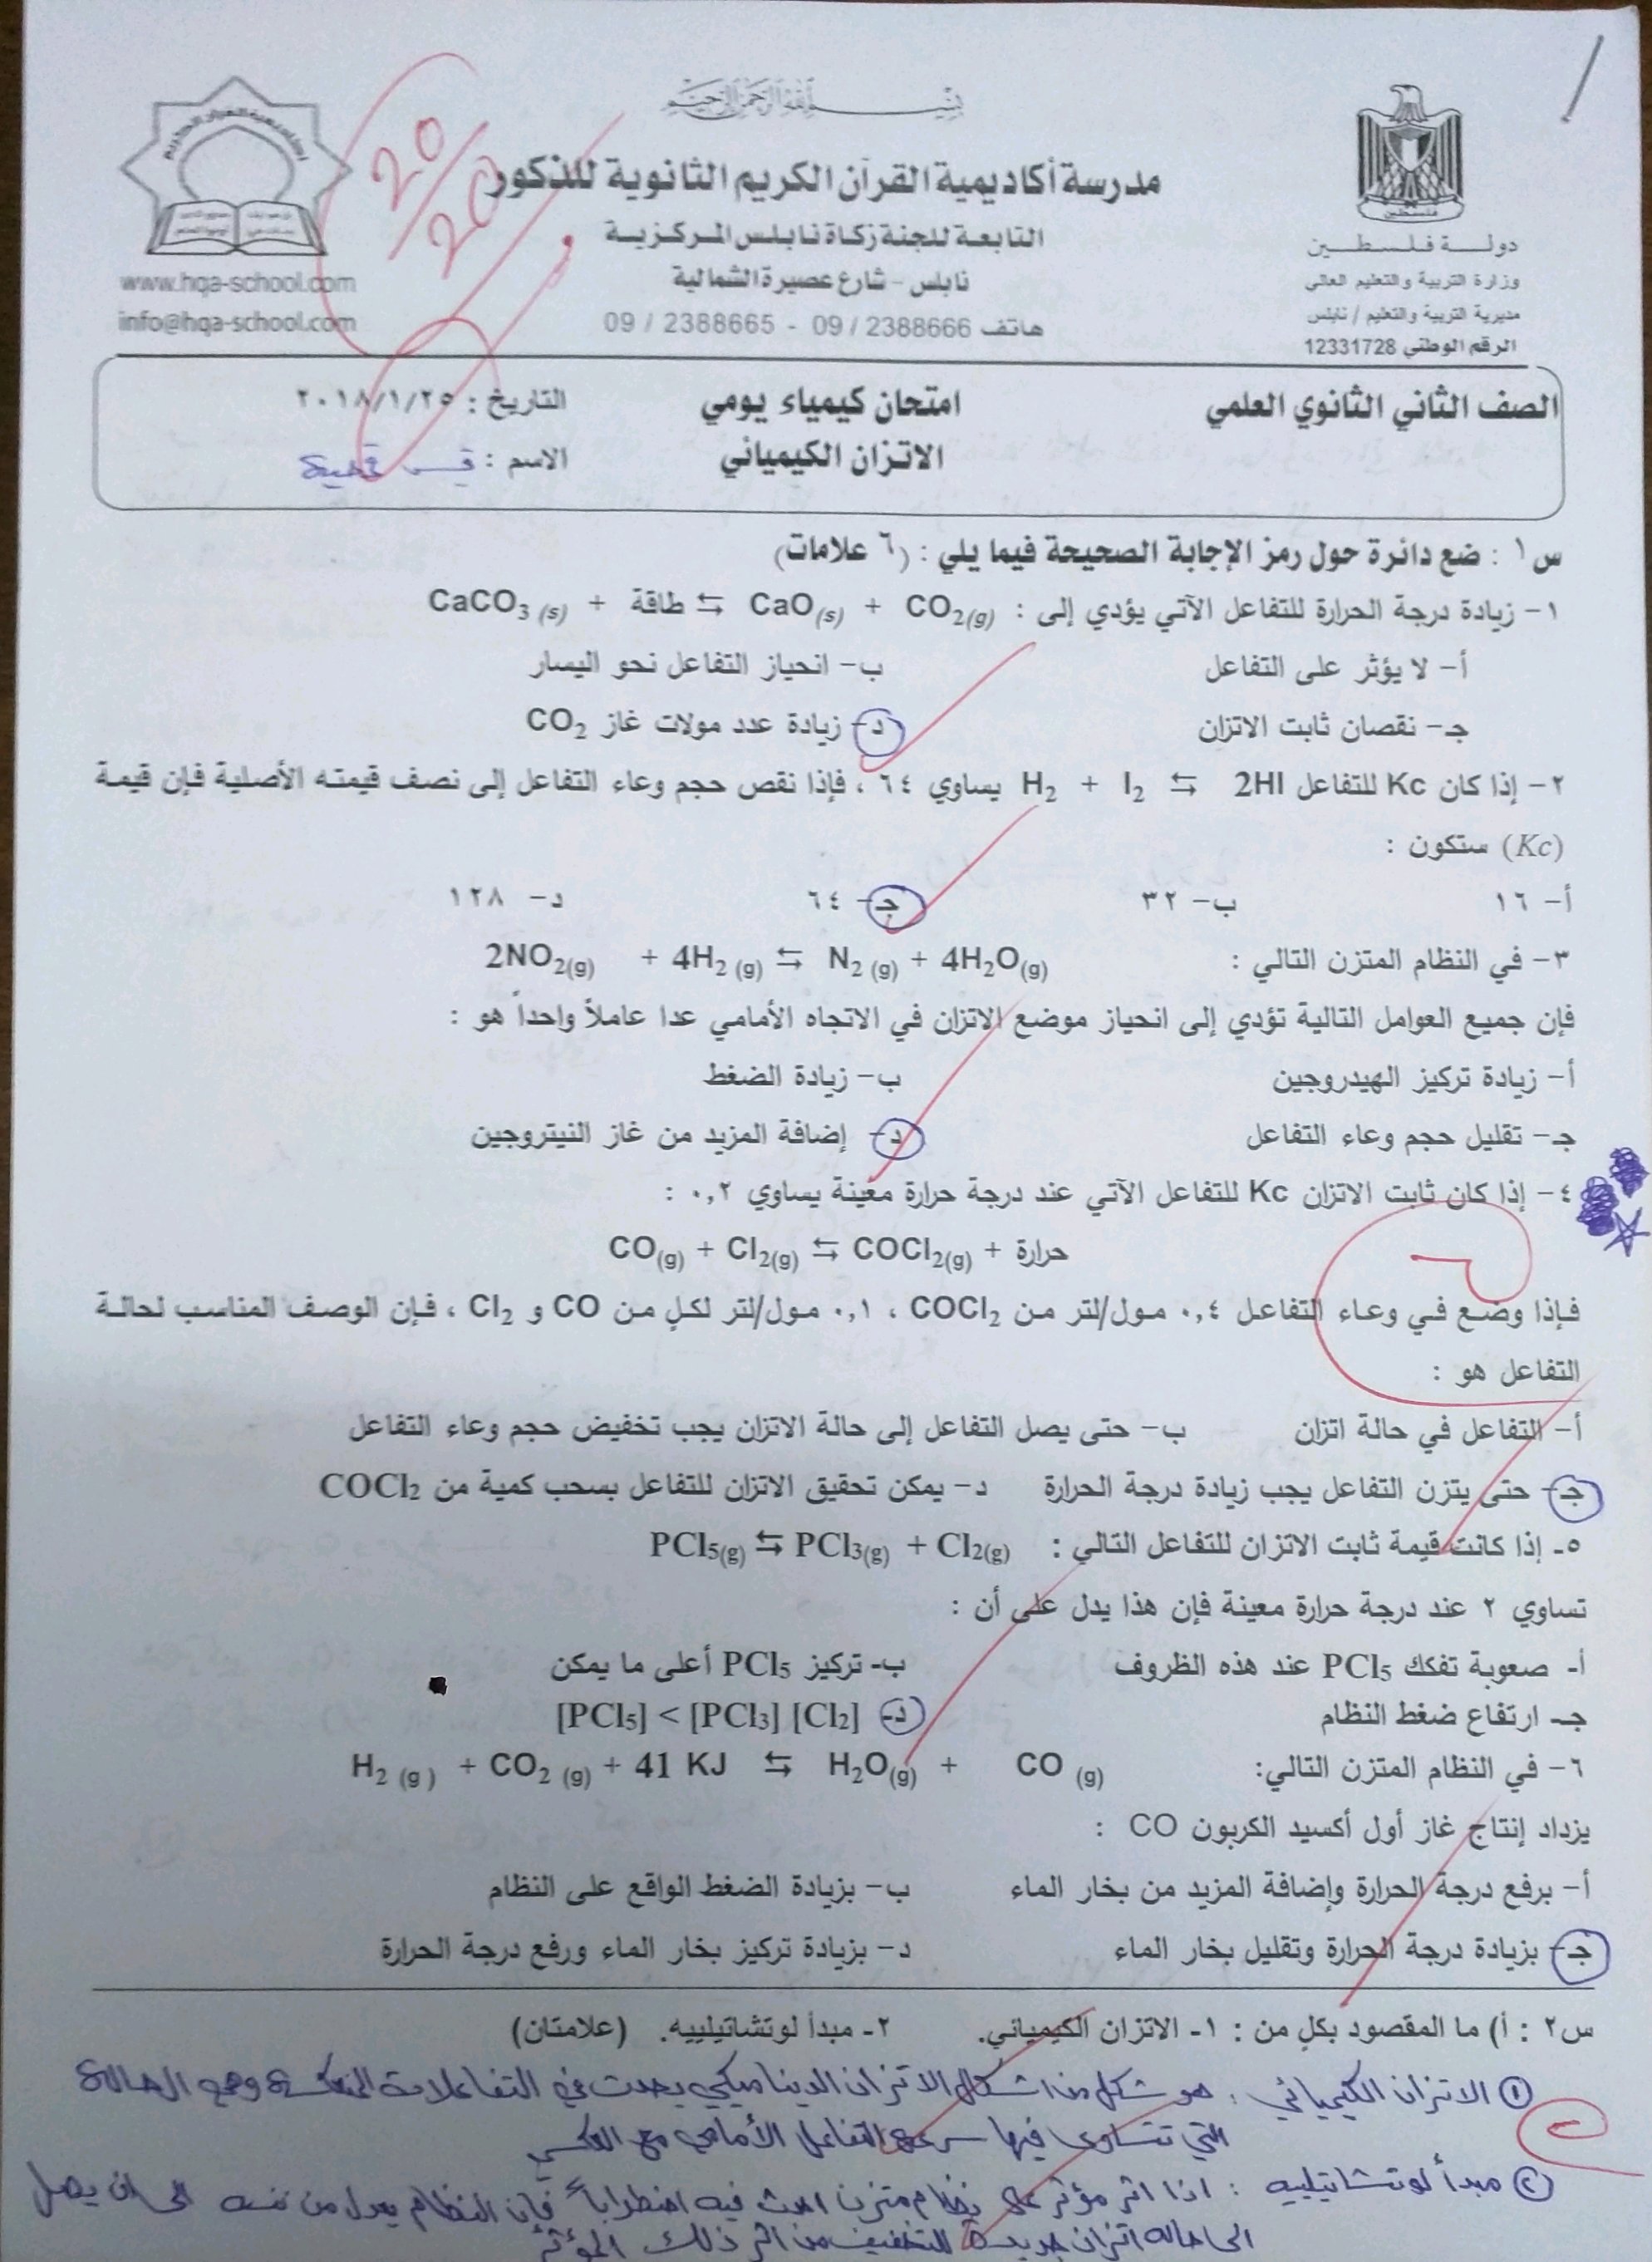 بسم الله الرحمن الرحيم
20/20
مدرسة أكاديمية القرآن الكريم الثانوية للذكور
التابعة للجنة زكاة نابلس المركزية
نابلس - شارع عصيرة الشمالية
هاتف 09 / 2388666 - 09 / 2388665
دولة فلسطين
وزارة التربية والتعليم العالي
مديرية التربية والتعليم / نابلس
الرقم الوطني 12331728
فلسطين
www.hqa-school.com
info@hqa-school.com
الصف الثاني الثانوي العلمي امتحان كيمياء يومي التاريخ : ٢٠١٨/١/٢٥
الاتزان الكيميائي الاسم :
س١ : ضع دائرة حول رمز الإجابة الصحيحة فيما يلي : (٦ علامات)
١- زيادة درجة الحرارة للتفاعل الآتي يؤدي إلى : CaCO3 (s) + طاقة ⇆ CaO(s) + CO2(g)
أ- لا يؤثر على التفاعل ب- انحياز التفاعل نحو اليسار
جـ- نقصان ثابت الاتزان د- زيادة عدد مولات غاز CO2
٢- إذا كان Kc للتفاعل H2 + I2 ⇆ 2HI يساوي ٦٤ ، فإذا نقص حجم وعاء التفاعل إلى نصف قيمته الأصلية فإن قيمة
(Kc) ستكون :
أ- ١٦ ب- ٣٢ جـ- ٦٤ د- ١٢٨
٣- في النظام المتزن التالي : 2NO2(g) + 4H2 (g) ⇆ N2 (g) + 4H2O(g)
فإن جميع العوامل التالية تؤدي إلى انحياز موضع الاتزان في الاتجاه الأمامي عدا عاملاً واحداً هو :
أ- زيادة تركيز الهيدروجين ب- زيادة الضغط
جـ- تقليل حجم وعاء التفاعل د- إضافة المزيد من غاز النيتروجين
٤- إذا كان ثابت الاتزان Kc للتفاعل الآتي عند درجة حرارة معينة يساوي ٠,٢ :
CO(g) + Cl2(g) ⇆ COCl2(g) + حرارة
فإذا وضع في وعاء التفاعل ٠,٤ مول/لتر من COCl2 ، ٠,١ مول/لتر لكلٍ من CO و Cl2 ، فإن الوصف المناسب لحالة
التفاعل هو :
أ- التفاعل في حالة اتزان ب- حتى يصل التفاعل إلى حالة الاتزان يجب تخفيض حجم وعاء التفاعل
جـ- حتى يتزن التفاعل يجب زيادة درجة الحرارة د- يمكن تحقيق الاتزان للتفاعل بسحب كمية من COCl2
٥- إذا كانت قيمة ثابت الاتزان للتفاعل التالي : PCl5(g) ⇆ PCl3(g) + Cl2(g)
تساوي ٢ عند درجة حرارة معينة فإن هذا يدل على أن :
أ- صعوبة تفكك PCl5 عند هذه الظروف ب- تركيز PCl5 أعلى ما يمكن
جـ- ارتفاع ضغط النظام د- [PCl5] < [PCl3] [Cl2]
٦- في النظام المتزن التالي: H2 (g) + CO2 (g) + 41 KJ ⇆ H2O(g) + CO (g)
يزداد إنتاج غاز أول أكسيد الكربون CO :
أ- برفع درجة الحرارة وإضافة المزيد من بخار الماء ب- بزيادة الضغط الواقع على النظام
جـ- بزيادة درجة الحرارة وتقليل بخار الماء د- بزيادة تركيز بخار الماء ورفع درجة الحرارة
س٢ : أ) ما المقصود بكلٍ من : ١- الاتزان الكيميائي. ٢- مبدأ لوتشاتيلييه. (علامتان)
① الاتزان الكيميائي : هو شكل من اشكال الاتزان الديناميكي يحدث في التفاعلات المنعكسة وهي الحالة
التي تتساوى فيها سرعة التفاعل الأمامي مع العكسي
② مبدأ لوتشاتيلييه : اذا اثر مؤثر على نظام متزن احدث فيه اضطراباً فإن النظام يعدل من نفسه الى ان يصل
الى حالة اتزان جديدة للتخفيف من اثر ذلك المؤثر